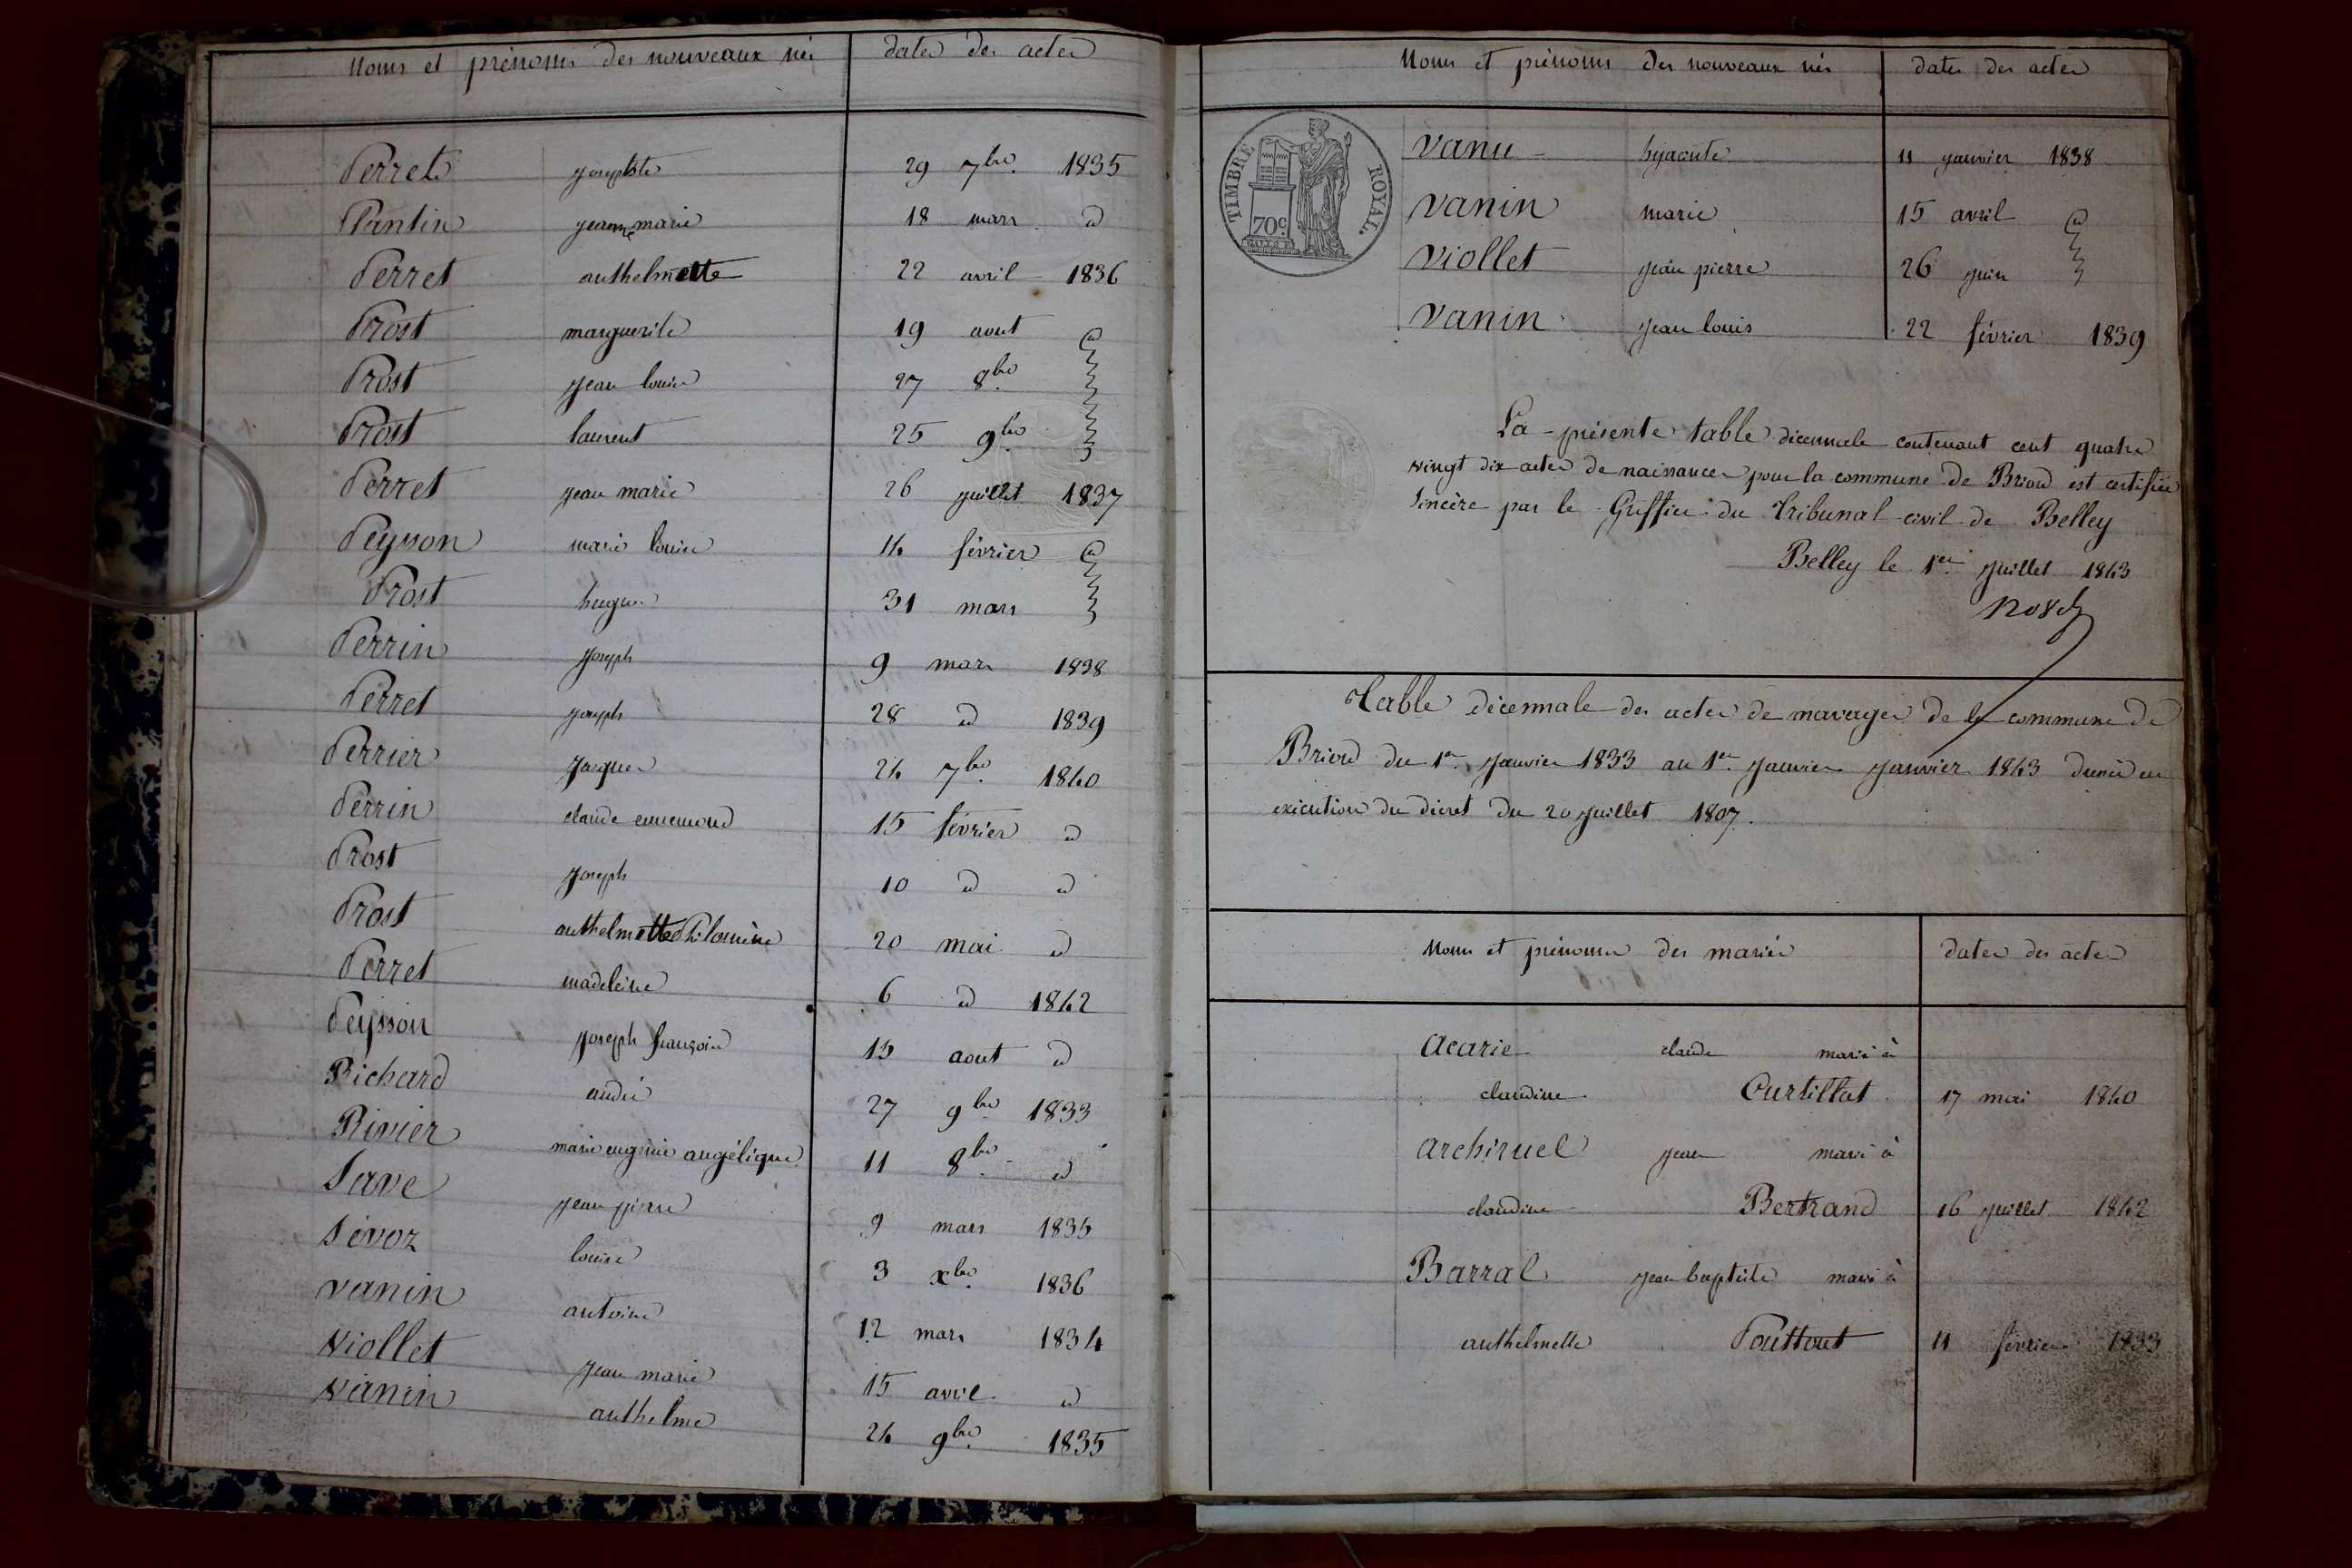 Noms et prénoms des nouveaux nés dates des actes
Perret josephte 29 7bre 1835
Plantin jeanne marie 18 mars id
Perret anthelmette 22 avril 1836
Prost marguerite 19 aout id
Prost jean louis 27 8bre
Prost laurent 25 9bre
Perret jean marie 26 juillet 1837
Peysson marie louise 14 février id
Prost hugues 31 mars
Perrin joseph 9 mars 1838
Perret joseph 28 id 1839
Perrier jacques 24 7bre 1840
Perrin claude ennemond 15 février id
Prost joseph 10 id id
Prost anthelmette Philomène 20 mai id
Perret madeleine 6 id 1842
Peysson joseph françois 15 aout id
Richard andré 27 9bre 1833
Rivier marie eugénie angélique 11 8bre id
Save jean pierre 9 mars 1835
Sévoz louise 3 xbre 1836
Vanin antoine 12 mars 1834
Viollet jean marie 15 avril id
Vanin anthelme 24 9bre 1835
Noms et prénoms des nouveaux nés dates des actes
TIMBRE ROYAL.
70c.
Vanu hyacinte 11 janvier 1838
Vanin marie 15 avril id
Viollet jean pierre 26 juin
Vanin jean louis 22 février 1839
La présente table décennale contenant cent quatre
vingt dix actes de naissances pour la commune de Briord est certifiée
Sincère par le Greffier du Tribunal civil de Belley
Belley le 1er juillet 1843
Table décennale des actes de mariages de la commune de
Briord du 1er Janvier 1833 au 1er Janvier Janvier 1843 dressée en
exécution du décret du 20 juillet 1807.
Noms et prénoms des mariés dates des actes
Acarie claude marié à
claudine Curtillat 17 mai 1840
Archiruel jean marié à
claudine Bertrand 16 juillet 1842
Barral jean baptiste marié à
anthelmette Pouttout 11 février 1833